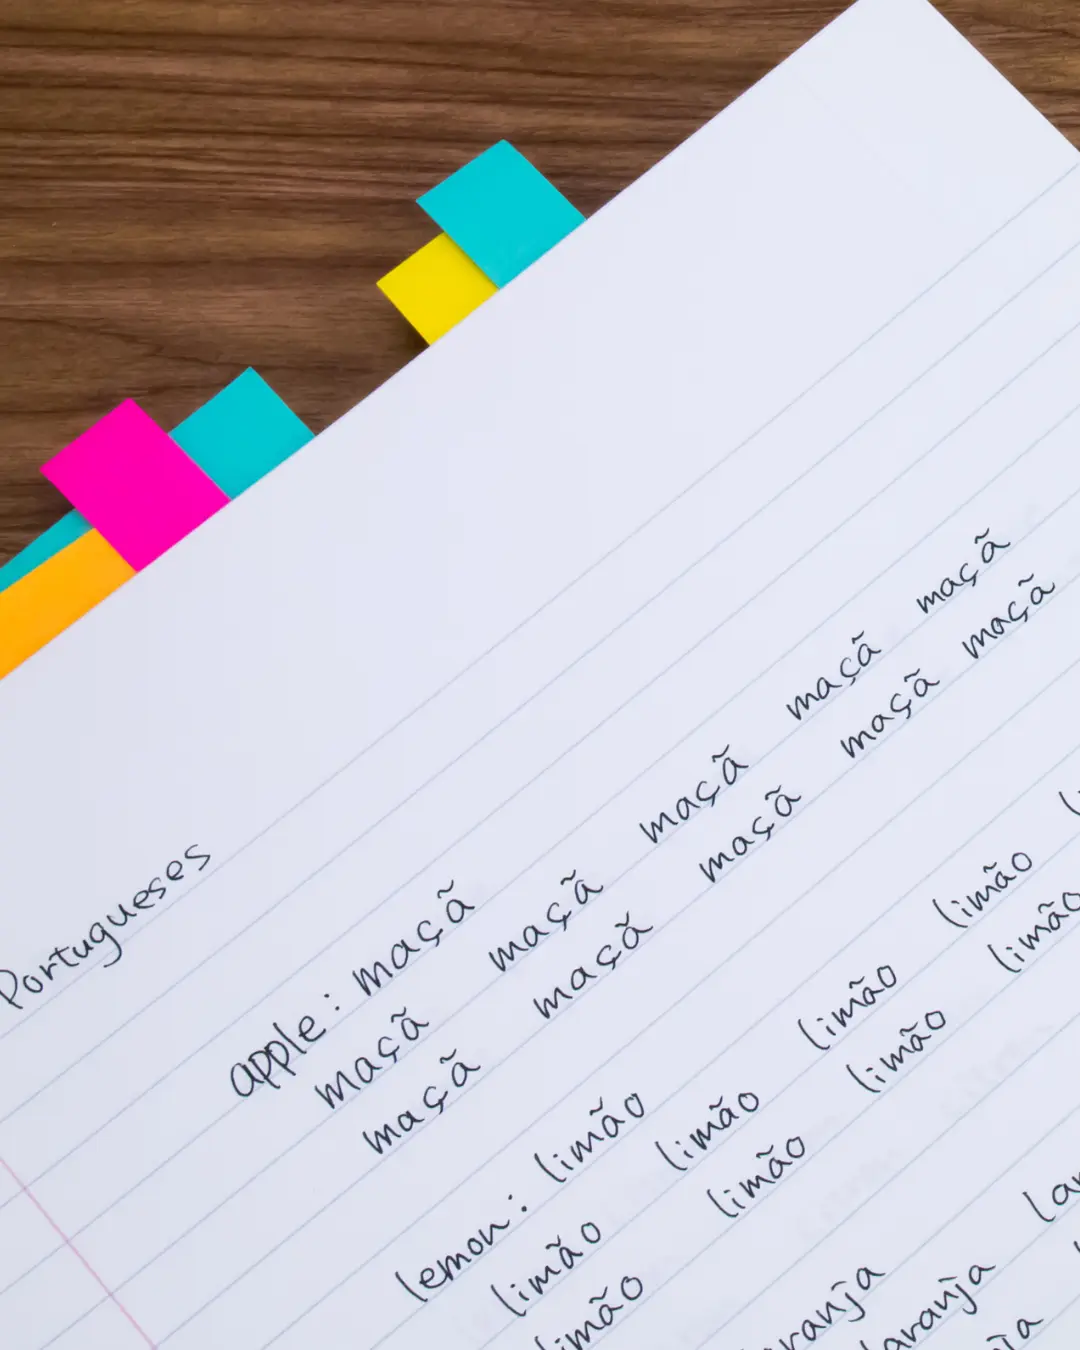 Portugueses
apple: maçã
maçã maçã maçã maçã maçã
maçã maçã maçã maçã maçã
lemon: limão
limão limão limão limão
limão limão limão limão
laranja
laranja